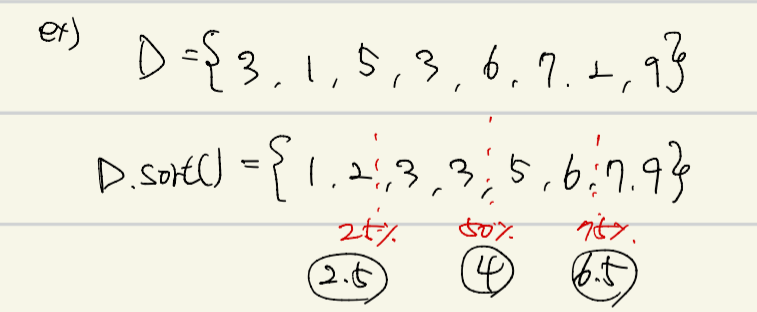 ex) D = {3, 1, 5, 3, 6, 7, 2, 9}
D.sort() = {1, 2, 3, 3, 5, 6, 7, 9}
25% 50% 75%
2.5 4 6.5